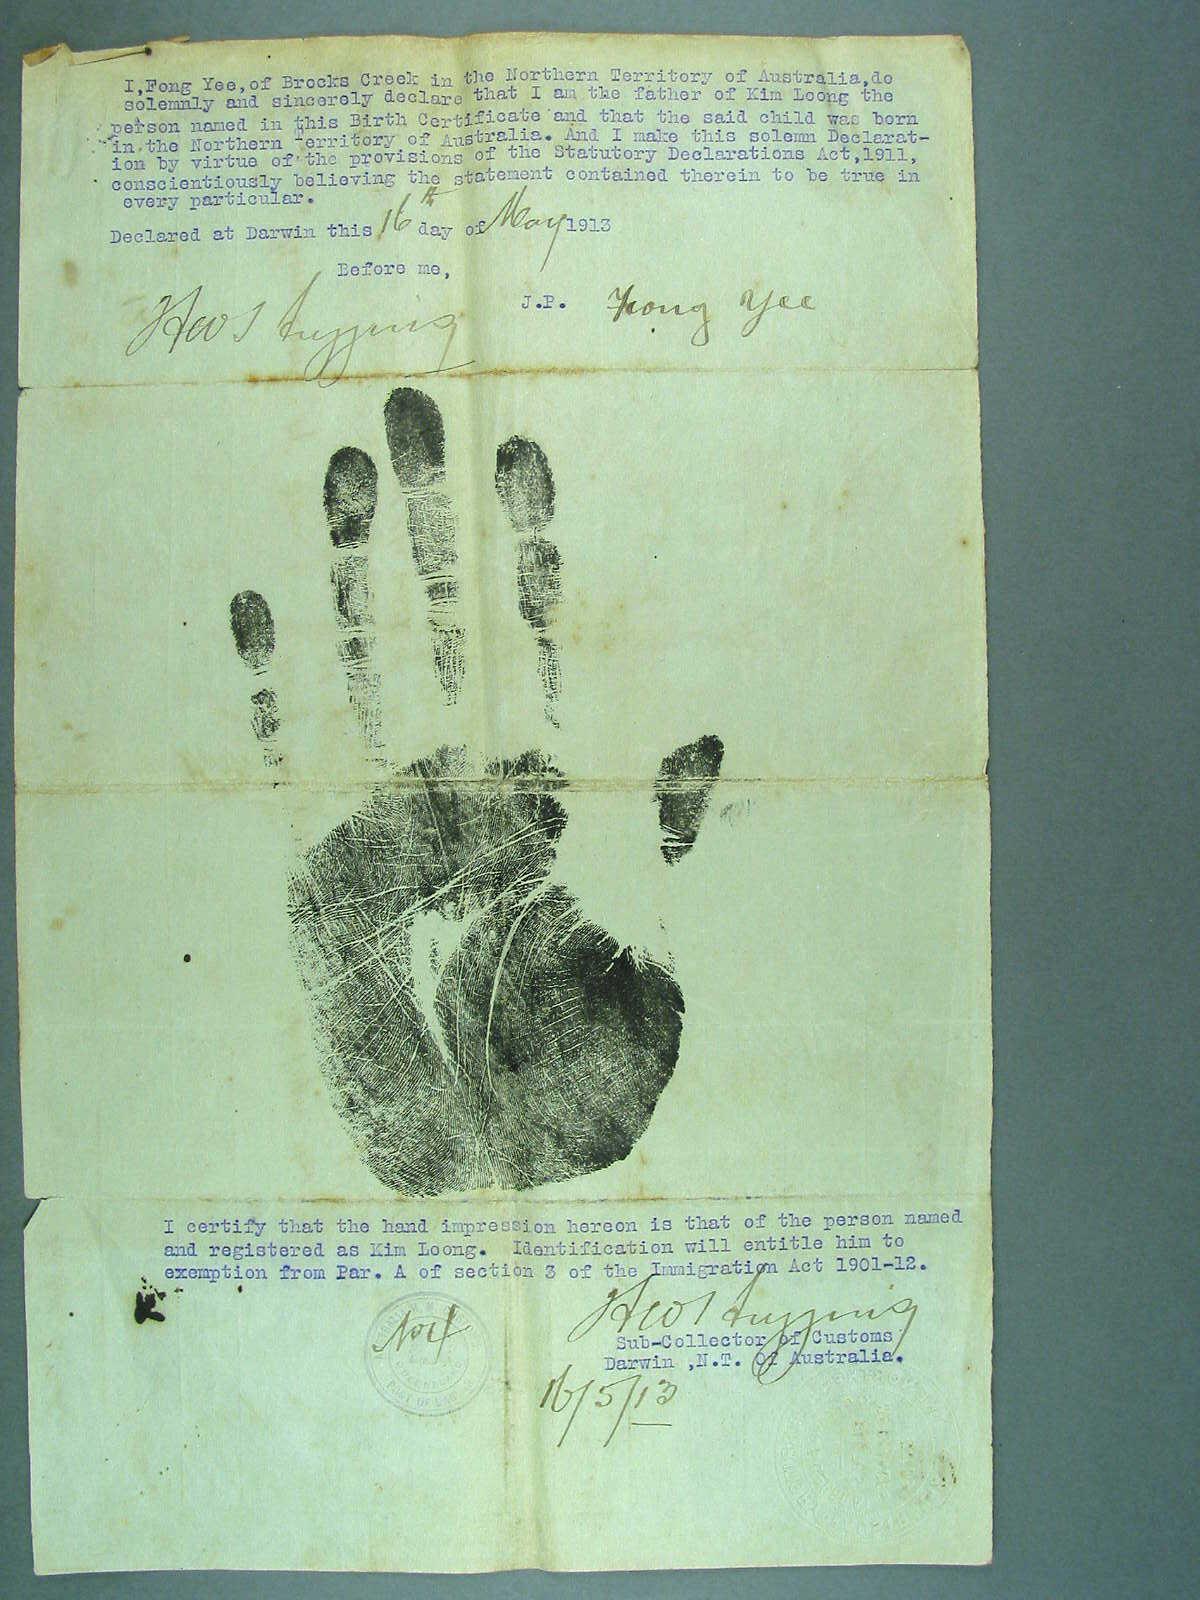 I, Fong Yee, of Brocks Creek in the Northern Territory of Australia, do
solemnly and sincerely declare that I am the father of Kim Loong the
person named in this Birth Certificate and that the said child was born
in the Northern Territory of Australia. And I make this solemn Declarat-
ion by virtue of the provisions of the Statutory Declarations Act, 1911,
conscientiously believing the statement contained therein to be true in
every particular.
Declared at Darwin this 16th day of May 1913
Before me,
J.P. Fong Yee
I certify that the hand impression hereon is that of the person named
and registered as Kim Loong. Identification will entitle him to
exemption from Par. A of section 3 of the Immigration Act 1901-12.
Sub-Collector of Customs
Darwin ,N.T. Of Australia.
16/5/13